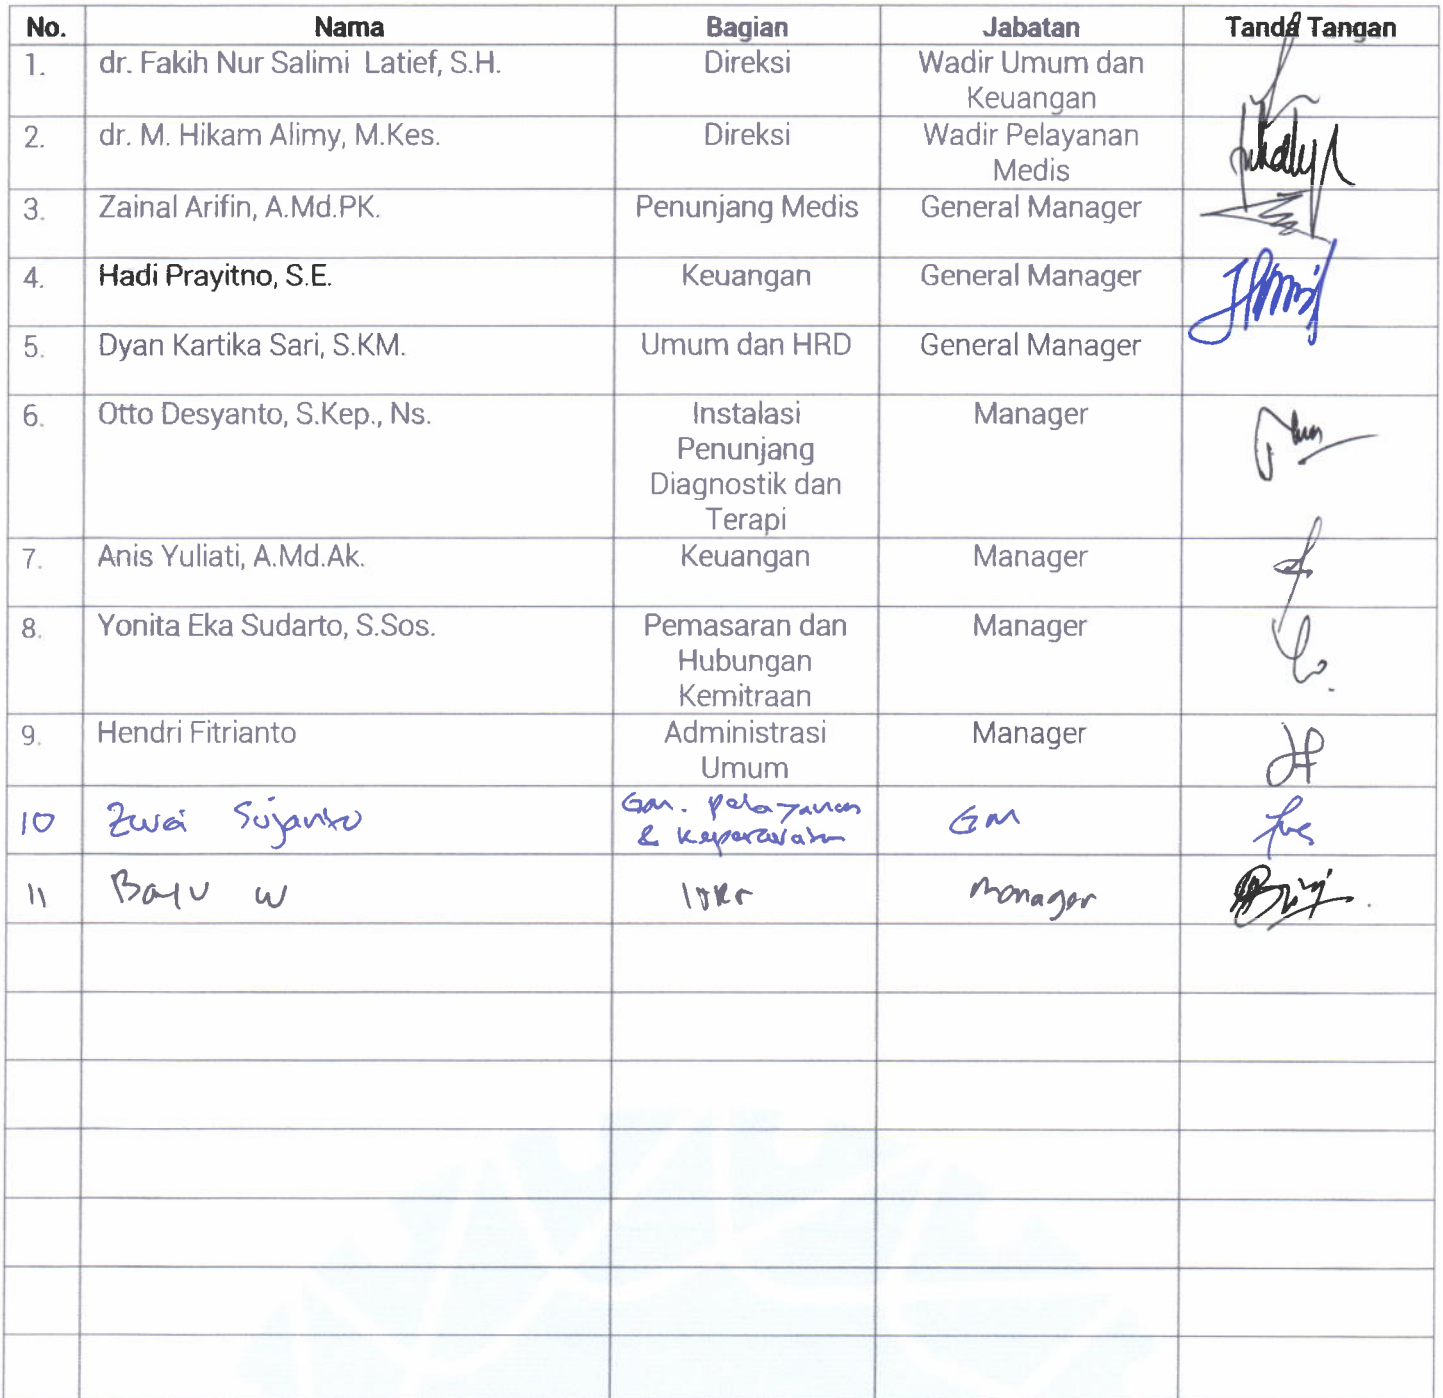 No. Nama Bagian Jabatan Tanda Tangan
1. dr. Fakih Nur Salimi Latief, S.H. Direksi Wadir Umum dan
Keuangan
2. dr. M. Hikam Alimy, M.Kes. Direksi Wadir Pelayanan
Medis
3. Zainal Arifin, A.Md.PK. Penunjang Medis General Manager
4. Hadi Prayitno, S.E. Keuangan General Manager
5. Dyan Kartika Sari, S.KM. Umum dan HRD General Manager
6. Otto Desyanto, S.Kep., Ns. Instalasi Manager
Penunjang
Diagnostik dan
Terapi
7. Anis Yuliati, A.Md.Ak. Keuangan Manager
8. Yonita Eka Sudarto, S.Sos. Pemasaran dan Manager
Hubungan
Kemitraan
9. Hendri Fitrianto Administrasi Manager
Umum
10 Sujanto GM. Pelayanan GM
& Keperawatan
11 Bayu W Manager